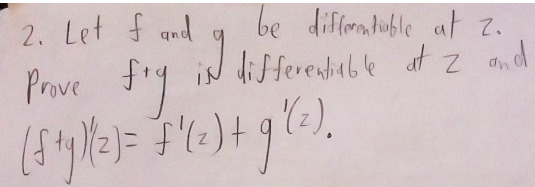 2. Let f and g be differentiable at z.
Prove f+g is differentiable at z and
(f+g)'(z) = f'(z) + g'(z).